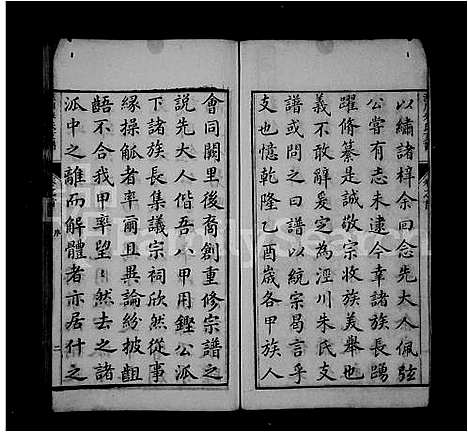 以繡諸梓余回念先大人佩弦
公嘗有志未逮今幸諸族長踴
躍脩纂是誠敬宗收族美舉也
義不敢辭爰定為涇川朱氏支
譜或問之曰譜以統宗曷言乎
支也憶乾隆乙酉歲各甲族人
會同闕里後裔創重修宗譜之
說先大人偕吾八甲用鏗公派
下諸族長集議宗祠欣然從事
緣操觚者率爾且異論紛披齟
齬不合我甲率望望然去之諸
派中之離而解體者亦居什之